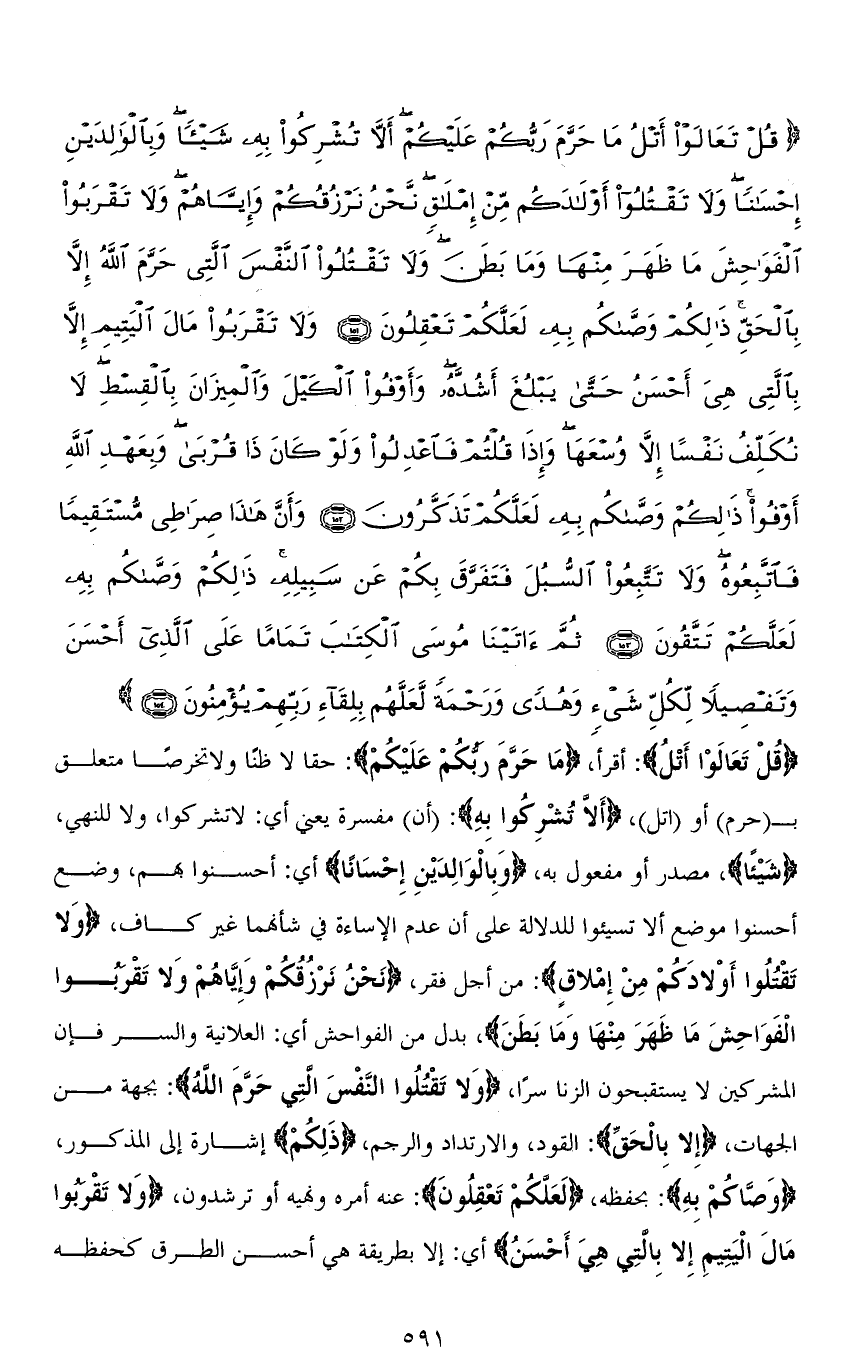 ﴿ قُلْ تَعَالَوْا۟ أَتْلُ مَا حَرَّمَ رَبُّكُمْ عَلَيْكُمْ ۖ أَلَّا تُشْرِكُوا۟ بِهِۦ شَيْـًٔا ۖ وَبِٱلْوَٰلِدَيْنِ
إِحْسَـٰنًا ۖ وَلَا تَقْتُلُوٓا۟ أَوْلَـٰدَكُم مِّنْ إِمْلَـٰقٍ ۖ نَّحْنُ نَرْزُقُكُمْ وَإِيَّاهُمْ ۖ وَلَا تَقْرَبُوا۟
ٱلْفَوَٰحِشَ مَا ظَهَرَ مِنْهَا وَمَا بَطَنَ ۖ وَلَا تَقْتُلُوا۟ ٱلنَّفْسَ ٱلَّتِى حَرَّمَ ٱللَّهُ إِلَّا
بِٱلْحَقِّ ۚ ذَٰلِكُمْ وَصَّىٰكُم بِهِۦ لَعَلَّكُمْ تَعْقِلُونَ ١٥١ وَلَا تَقْرَبُوا۟ مَالَ ٱلْيَتِيمِ إِلَّا
بِٱلَّتِى هِىَ أَحْسَنُ حَتَّىٰ يَبْلُغَ أَشُدَّهُۥ ۖ وَأَوْفُوا۟ ٱلْكَيْلَ وَٱلْمِيزَانَ بِٱلْقِسْطِ ۖ لَا
نُكَلِّفُ نَفْسًا إِلَّا وُسْعَهَا ۖ وَإِذَا قُلْتُمْ فَٱعْدِلُوا۟ وَلَوْ كَانَ ذَا قُرْبَىٰ ۖ وَبِعَهْدِ ٱللَّهِ
أَوْفُوا۟ ۚ ذَٰلِكُمْ وَصَّىٰكُم بِهِۦ لَعَلَّكُمْ تَذَكَّرُونَ ١٥٢ وَأَنَّ هَـٰذَا صِرَٰطِى مُسْتَقِيمًا
فَٱتَّبِعُوهُ ۖ وَلَا تَتَّبِعُوا۟ ٱلسُّبُلَ فَتَفَرَّقَ بِكُمْ عَن سَبِيلِهِۦ ۚ ذَٰلِكُمْ وَصَّىٰكُم بِهِۦ
لَعَلَّكُمْ تَتَّقُونَ ١٥٣ ثُمَّ ءَاتَيْنَا مُوسَى ٱلْكِتَـٰبَ تَمَامًا عَلَى ٱلَّذِىٓ أَحْسَنَ
وَتَفْصِيلًا لِّكُلِّ شَىْءٍ وَهُدًى وَرَحْمَةً لَّعَلَّهُم بِلِقَآءِ رَبِّهِمْ يُؤْمِنُونَ ١٥٤ ﴾
﴿قُلْ تَعَالَوْا أَتْلُ﴾: أقرأ، ﴿مَا حَرَّمَ رَبُّكُمْ عَلَيْكُمْ﴾: حقا لا ظنًا ولاتخرصًا متعلق
بـ(حرم) أو (اتل)، ﴿أَلاَّ تُشْرِكُوا بِهِ﴾: (أن) مفسرة يعني أي: لاتشركوا، ولا للنهي،
﴿شَيْئًا﴾، مصدر أو مفعول به، ﴿وَبِالْوَالِدَيْنِ إِحْسَانًا﴾ أي: أحسنوا بهم، وضع
أحسنوا موضع ألا تسيئوا للدلالة على أن عدم الإساءة في شأنهما غير كاف، ﴿وَلا
تَقْتُلُوا أَوْلادَكُمْ مِنْ إِمْلاقٍ﴾: من أجل فقر، ﴿نَحْنُ نَرْزُقُكُمْ وَإِيَّاهُمْ وَلا تَقْرَبُوا
الْفَوَاحِشَ مَا ظَهَرَ مِنْهَا وَمَا بَطَنَ﴾، بدل من الفواحش أي: العلانية والسر فإن
المشركين لا يستقبحون الزنا سرًا، ﴿وَلا تَقْتُلُوا النَّفْسَ الَّتِي حَرَّمَ اللَّهُ﴾: بجهة من
الجهات، ﴿إِلا بِالْحَقِّ﴾: القود، والارتداد والرجم، ﴿ذَلِكُمْ﴾ إشارة إلى المذكور،
﴿وَصَّاكُمْ بِهِ﴾: بحفظه، ﴿لَعَلَّكُمْ تَعْقِلُونَ﴾: عنه أمره ونهيه أو ترشدون، ﴿وَلا تَقْرَبُوا
مَالَ الْيَتِيمِ إِلا بِالَّتِي هِيَ أَحْسَنُ﴾ أي: إلا بطريقة هي أحسن الطرق كحفظه
٥٩١